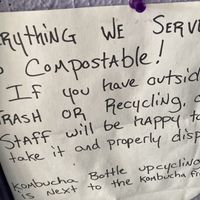 WE SERV
COMPOSTABLE!
IF you have outsid
OR Recycling,
STAFF will be happy to
take it and properly disp
Kombucha Bottle upcycling
is Next to the Kombucha fr